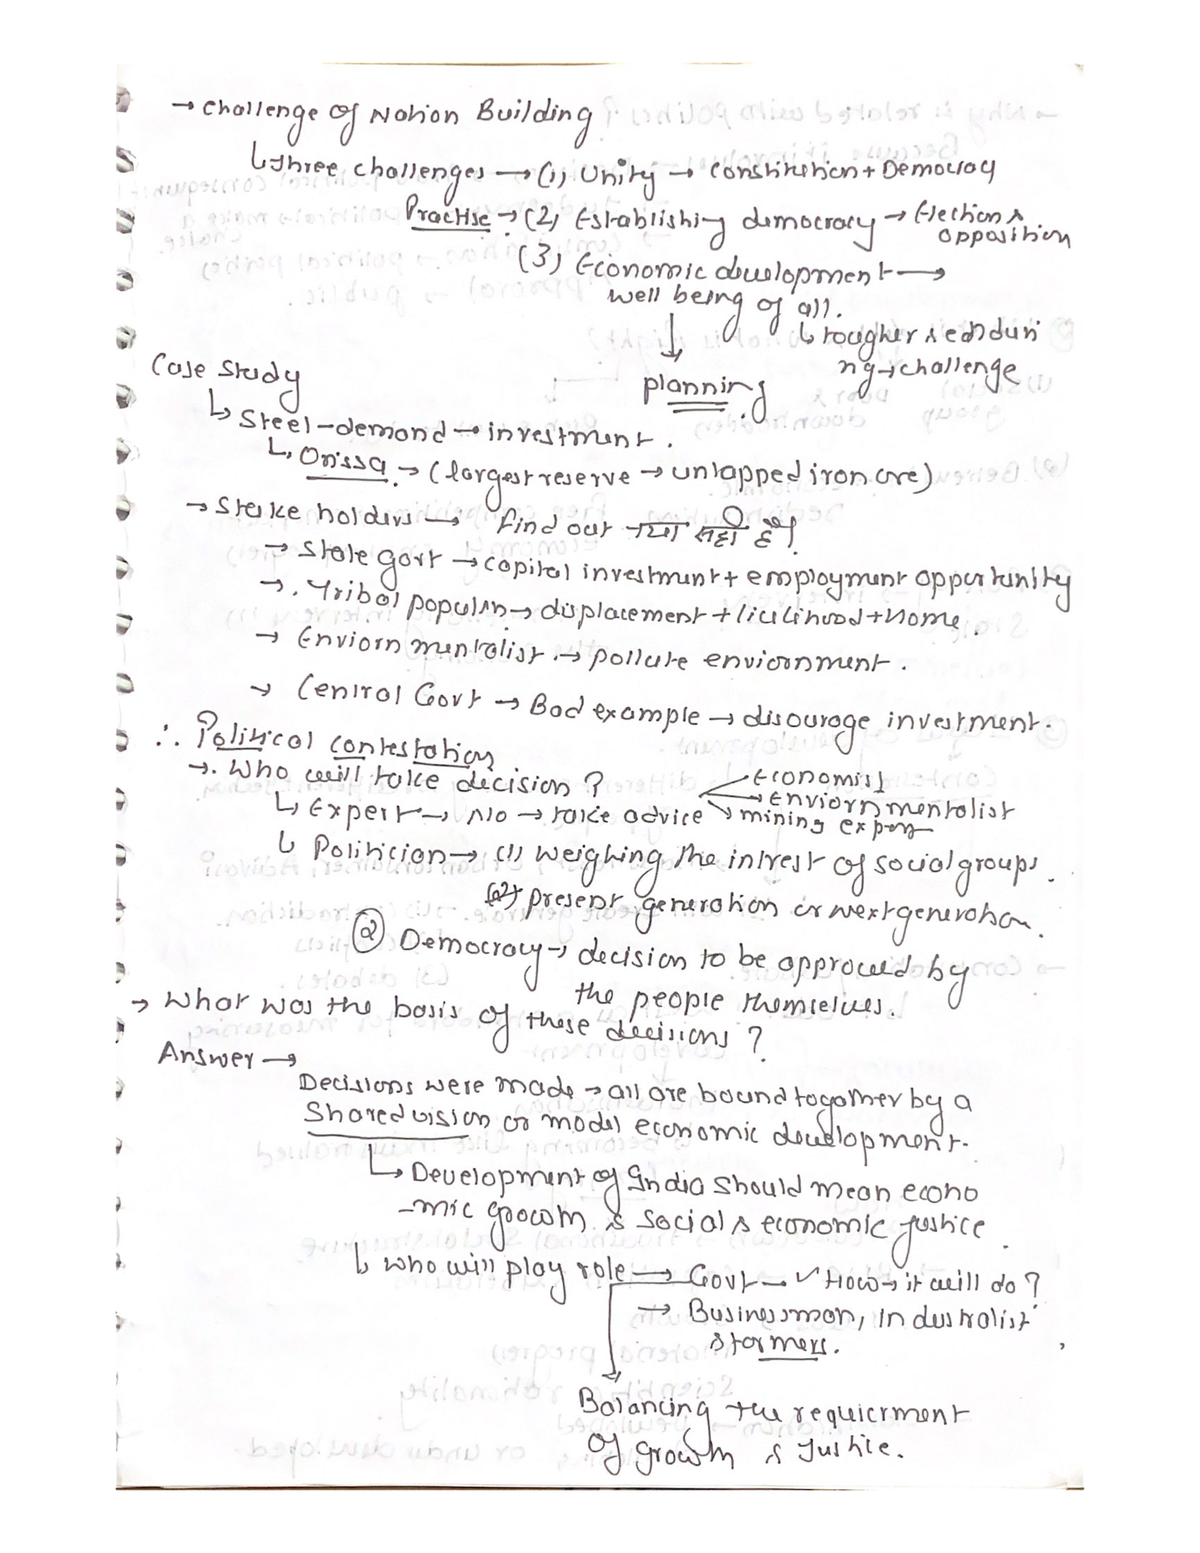 → Challenge of Nation Building
↳ Three challenges → (1) Unity → Constitution + Democracy
Practise → (2) Establishing democracy → Election & opposition
(3) Economic development →
well being of all.
↳ tougher & enduri
ng → challenge
↓
planning
Case Study
↳ Steel-demand → investment.
↳ Orissa → (largest reserve → untapped iron ore)
→ Stake holders → find out क्या सही है।
→ State Govt → capital investment + employment opportunity
→ Tribal populn → displacement + livlihood + home.
→ Enviornmentalist → pollute enviornment.
→ Central Govt → Bad example → disourage investment.
∴ Political contestation
→ Who will take decision?
→ Economist
↳ Expert → No → take advice → Enviornmentalist
→ mining expert
↳ Politicion → (1) weighing the intrest of social groups.
(2) present generation or next generation.
② Democracy → decision to be approved by
the people themselves.
→ What was the basis of these decisions?
Answer →
Decisions were made → all are bound together by a
Shared vision or model economic development.
↳ Development of India should mean econo
-mic growth & social & economic justice.
↳ who will play role → Govt → ✓ How → it will do?
→ Businessman, industralist
& farmers.
Balancing the requirment
of growth & Justice.